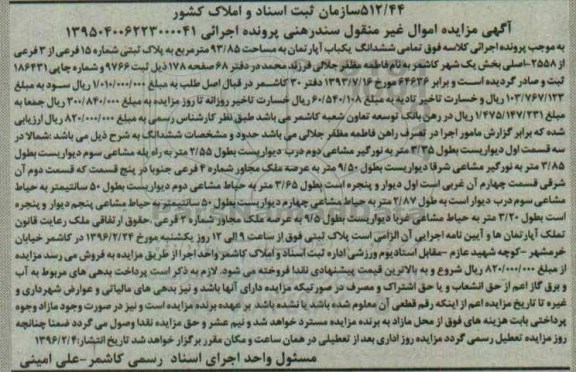 ۵۱۲/۴۴سازمان ثبت اسناد و املاک کشور
آگهی مزایده اموال غیر منقول سندرهنی پرونده اجرائی ۱۳۹۵۰۴۰۰۶۲۲۳۰۰۰۰۴۱
به موجب پرونده اجرائی کلاسه فوق تمامی ششدانگ یکباب آپارتمان به مساحت ۹۳/۸۵ مترمربع به پلاک ثبتی شماره ۱۵ فرعی از ۳ فرعی
از ۲۵۵۸-اصلی بخش یک شهر کاشمر به نام فاطمه مظفر جلالی فرزند محمد در دفتر ۶۸ صفحه ۱۷۸ ذیل ثبت ۹۷۶۶ و شماره چاپی ۱۸۶۴۳۱
ثبت و صادر گردیده است و برابر ۶۴۶۳۶ مورخ ۱۳۹۳/۷/۱۶ دفتر ۳۰ کاشمر در قبال اصل طلب به مبلغ ۱/۰۱۰/۰۰۰/۰۰۰ ریال سود به مبلغ
۱۰۳/۷۶۷/۱۲۳ ریال و خسارت تاخیر تادیه به مبلغ ۶۰/۵۴۰/۱۰۸ ریال خسارت تاخیر روزانه تا روز مزایده به مبلغ ۳۰۰/۸۴۰/۰۰۰ ریال جمعا به
مبلغ ۱/۴۷۵/۱۴۷/۲۳۱ ریال در رهن بانک توسعه تعاون شعبه کاشمر می باشد طبق نظر کارشناس رسمی به مبلغ ۸۲۰/۰۰۰/۰۰۰ ریال ارزیابی
شده که برابر گزارش مامور اجرا در تصرف راهن فاطمه مظفر جلالی می باشد حدود و مشخصات ششدانگ به شرح ذیل می باشد: شمالا در
سه قسمت اول دیواریست بطول ۳/۳۵ متر به نورگیر مشاعی دوم درب دیواریست بطول ۲/۵۵ متر به راه پله مشاعی سوم دیواریست بطول
۳/۸۵ متر به نورگیر مشاعی شرقا دیواریست بطول ۹/۵۰ متر به عرصه ملک مجاور شماره ۴ فرعی جنوبا در پنج قسمت که قسمت دوم آن
شرقی قسمت چهارم آن غربی است اول دیوار و پنجره است بطول ۳/۶۵ متر به حیاط مشاعی دوم دیواریست بطول ۵۰ سانتیمتر به حیاط
مشاعی سوم درب دیوار است به طول ۲/۸۷ متر به حیاط مشاعی چهارم دیواریست بطول ۵۰ سانتیمتر به حیاط مشاعی پنجم دیوار و پنجره
است بطول ۳/۲۰ متر به حیاط مشاعی غربا دیواریست بطول ۹/۵ به عرصه ملک مجاور شماره ۲ فرعی ،حقوق ارتفاقی ملک رعایت قانون
تملک آپارتمان ها و آیین نامه اجرایی آن الزامی است پلاک ثبتی فوق از ساعت ۹ الی ۱۲ روز یکشنبه مورخ ۱۳۹۶/۲/۲۴ در کاشمر خیابان
خرمشهر -کوچه شهید عازم -مقابل استادیوم ورزشی اداره ثبت اسناد و املاک کاشمر واحد اجرا از طریق مزایده به فروش می رسد مزایده
از مبلغ ۸۲۰/۰۰۰/۰۰۰ ریال شروع و به بالاترین قیمت پیشنهادی نقدا فروخته می شود. لازم به ذکر است پرداخت بدهی های مربوط به آب
و برق گاز اعم از حق انشعاب و یا حق اشتراک و مصرف در صورتیکه مزایده دارای آنها باشد و نیز بدهی های مالیاتی و عوارض شهرداری و
غیره تا تاریخ مزایده اعم از اینکه رقم قطعی آن معلوم شده باشد یا نشده باشد بر عهده برنده مزایده است و نیز در صورت وجود مازاد وجوه
پرداختی بابت هزینه های فوق از محل مازاد به برنده مزایده مسترد خواهد شد و نیم عشر و حق مزایده نقدا وصول می گردد ضمنا چنانچه
روز مزایده تعطیل رسمی گردد مزایده روز اداری بعد از تعطیلی در همان ساعت و مکان مقرر برگزار خواهد شد تاریخ انتشار:۱۳۹۶/۲/۴
مسئول واحد اجرای اسناد رسمی کاشمر-علی امینی